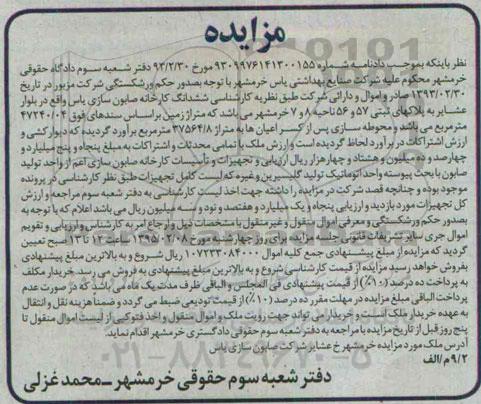 مزایده
نظر باینکه بموجب دادنامه شماره ۹۳۰۹۹۷۶۱۴۱۳۰۰۱۵۵ مورخ ۹۳/۲/۳۰ دفتر شعبه سوم دادگاه حقوقی
خرمشهر محکوم علیه شرکت صنایع بهداشتی یاس خرمشهر با توجه بصدور حکم ورشکستگی شرکت مزبور در تاریخ
۱۳۹۳/۰۲/۳۰ صادر و اموال و دارائی شرکت طبق نظریه کارشناسی ششدانگ کارخانه صابون سازی یاس واقع در بلوار
عشایر به پلاکهای ثبتی ۵۷ و ۵۶ ناحیه ۸ و ۷ خرمشهر می باشد که متراژ زمین براساس سندهای فوق ۴۷۲۴۰/۰۴
مترمربع می باشد و محوطه سازی پس از کسر اعیان ها به متراژ ۳۷۵۶۴/۸ مترمربع برآورد گردیده که دیوارکشی و
ارزش اشتراکات در برآورد لحاظ گردیده است و ارزش ملک با تمامی محدثات و اشتراکات به مبلغ پنجاه و پنج میلیارد و
چهارصد و ده میلیون و هشتاد و چهارهزار ریال ارزیابی و تجهیزات و تأسیسات کارخانه صابون سازی اعم از واحد تولید
صابون با بچت پیوسته واحد اتوماتیک تولید گلیسیرین و غیره که لیست کامل تجهیزات طبق نظر کارشناسی در پرونده
موجود بوده و چنانچه قصد شرکت در مزایده را داشته جهت اخذ لیست کارشناسی به دفتر شعبه سوم مراجعه و ارزش
کل تجهیزات مورد بازدید و ارزیابی پنجاه و یک میلیارد و هفتصد و نود و سه میلیون ریال می باشد اعلام که با توجه به
بصدور حکم ورشکستگی و معرفی اموال منقول و غیرمنقول با مشخصات ذیل و ارجاع امر به کارشناس و ارزیابی و تقویم
اموال جری سایر تشریفات قانونی جلسه مزایده برای روز چهارشنبه مورخ ۱۳۹۵/۰۲/۰۸ ساعت ۱۳ تا ۱۲ صبح تعیین
گردید که مزایده از مبلغ پیشنهادی جمع کلیه اموال ۱۰۷۲۳۳۰۸۴۰۰۰ ریال شروع و به بالاترین مبلغ پیشنهادی
بفروش خواهد رسید مزایده از قیمت کارشناسی شروع و به بالاترین مبلغ پیشنهادی به فروش می رسد. خریدار مکلف
به پرداخت ده درصد (۱۰٪) از قیمت پیشنهادی فی المجلس و الباقی ظرف مدت یک ماه می باشد که در صورت عدم
پرداخت الباقی مبلغ مزایده در مهلت مقرر ده درصد (۱۰٪) از قیمت تودیعی ضبط می گردد و ضمنا هزینه نقل و انتقال
به عهده خریدار ملک است و خریدار می تواند جهت رویت ملک و اموال منقول و اخذ فتوکپی از لیست اموال منقول تا
پنج روز قبل از تاریخ مزایده با مراجعه به دفتر شعبه سوم حقوقی دادگستری خرمشهر اقدام نماید.
آدرس ملک مورد مزایده خرمشهر خ عشایر شرکت صابون سازی یاس
۹/۲م/الف
دفتر شعبه سوم حقوقی خرمشهر ـ محمد غزلی